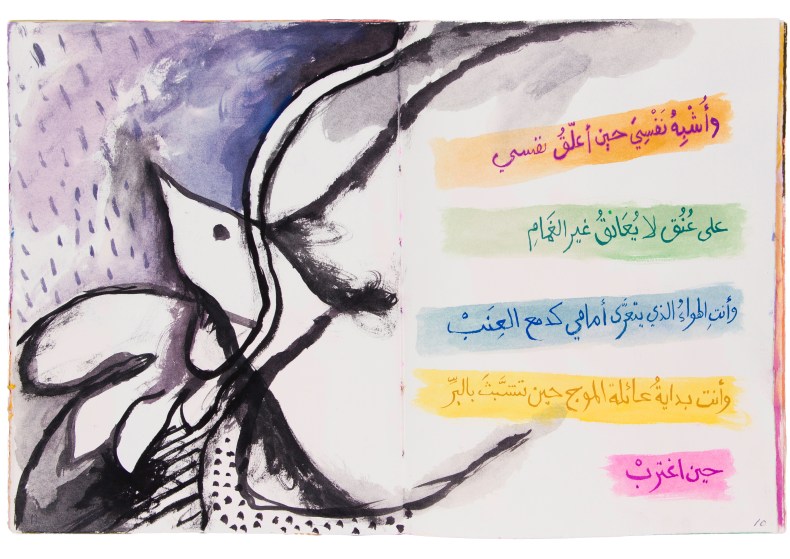 وأُشْبِهُ نَفْسِيَ حين أعلّقُ نفسي
على عُنُق لا يُعَانِقُ غير الغَمَامِ
وأنتِ الهواءُ الذي يتعرَّى أمامي كدمع العِنَبْ
وأنت بدايةُ عائلة الموج حين تشبَّثَ بالبرِّ
حين اغتربْ
10